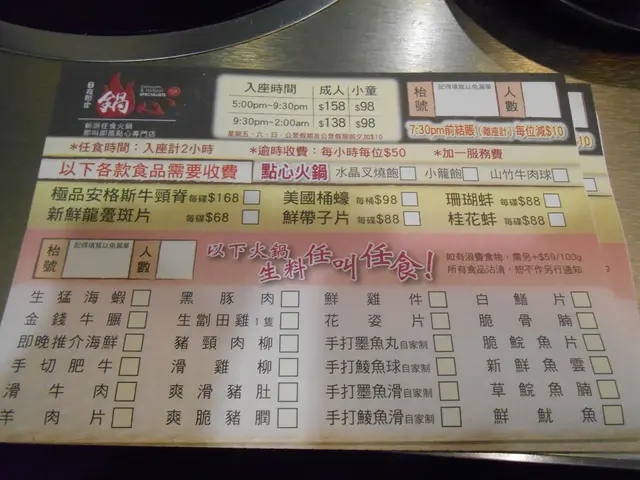 鍋心
新派任食火鍋
即叫即蒸點心專門店
入座時間 成人 小童
5:00pm~9:30pm $158 $98
9:30pm~2:00am $138 $98
星期五、六、日、公眾假期及公眾假期前夕加$10
枱號 記得填寫以免漏單 人數
7:30pm前結賬(離座計)每位減$10
*任食時間：入座計2小時 *逾時收費：每小時每位$50 *加一服務費
以下各款食品需要收費 點心火鍋 水晶叉燒飽 小龍飽 山竹牛肉球
極品安格斯牛頸脊 每碟$168 美國桶蠔 每桶$98 珊瑚蚌 每碟$88
新鮮龍躉斑片 每碟$68 鮮帶子片 每碟$88 桂花蚌 每碟$88
枱號 記得填寫以免漏單 人數
以下火鍋生料任叫任食！
如有浪費食物，需另+$59/100g
所有食品沽清，恕不作另行通知
3
生猛海蝦 黑豚肉 鮮雞件 白鱔片
金錢牛𦟌 生劏田雞1隻 花姿片 脆骨腩
即晚推介海鮮 豬頸肉柳 手打墨魚丸自家制 脆鯇魚片
手切肥牛 滑雞柳 手打鯪魚球自家制 新鮮魚雲
滑牛肉 爽滑豬肚 手打墨魚滑自家制 草鯇魚腩
羊肉片 爽脆豬膶 手打鯪魚滑自家制 鮮魷魚